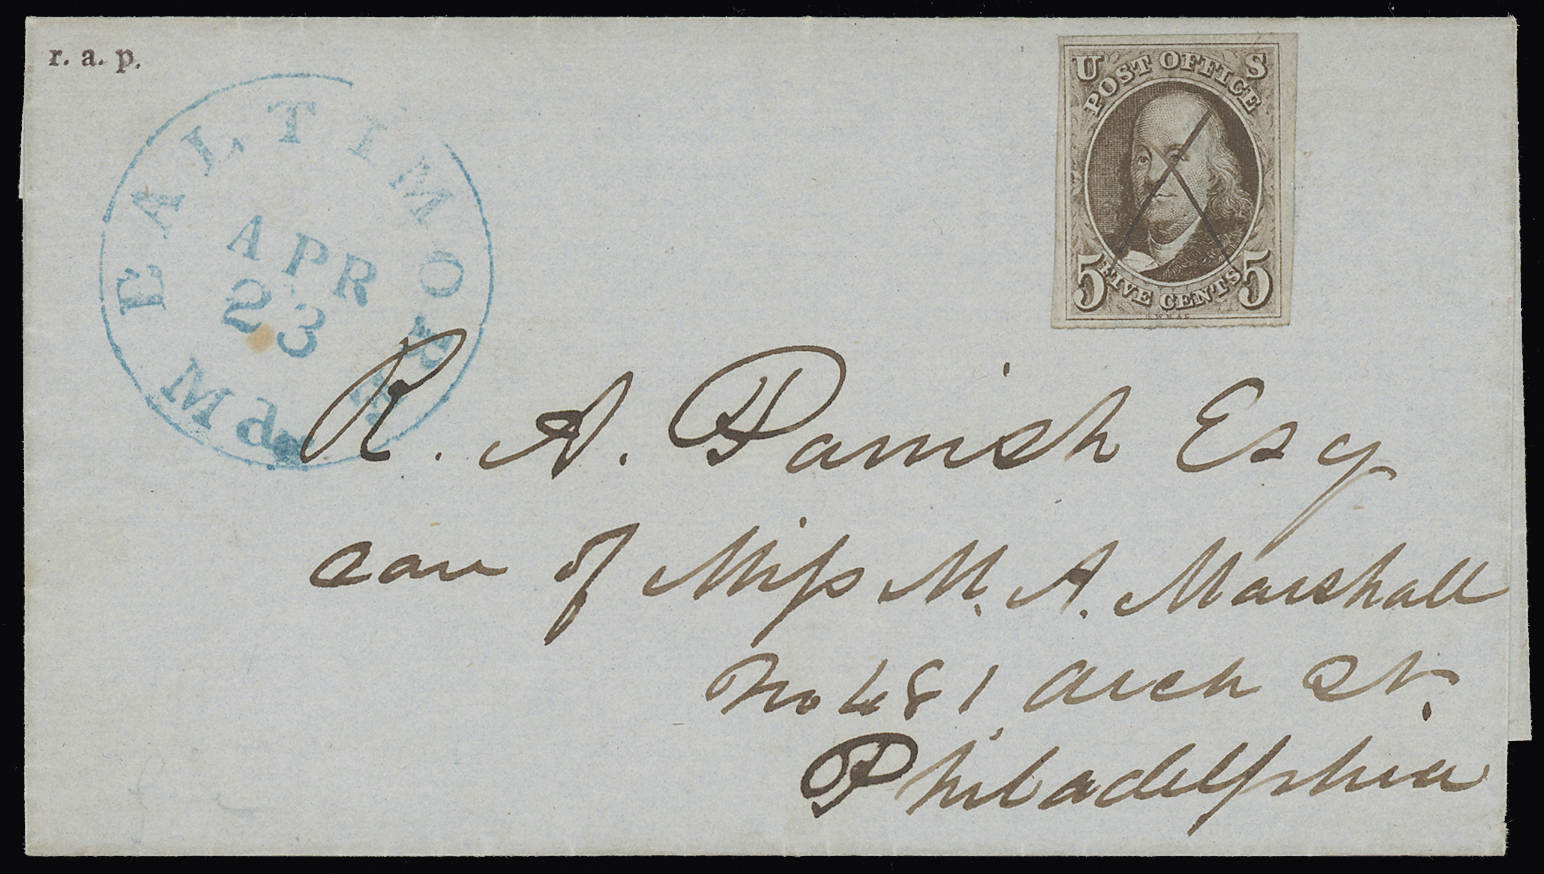 r. a. p.
BALTIMORE
APR
23
Md.
U S
POST OFFICE
5 FIVE CENTS 5
R. A. Parrish Esq
care of Miss M. A. Marshall
No 481 Arch St.
Philadelphia